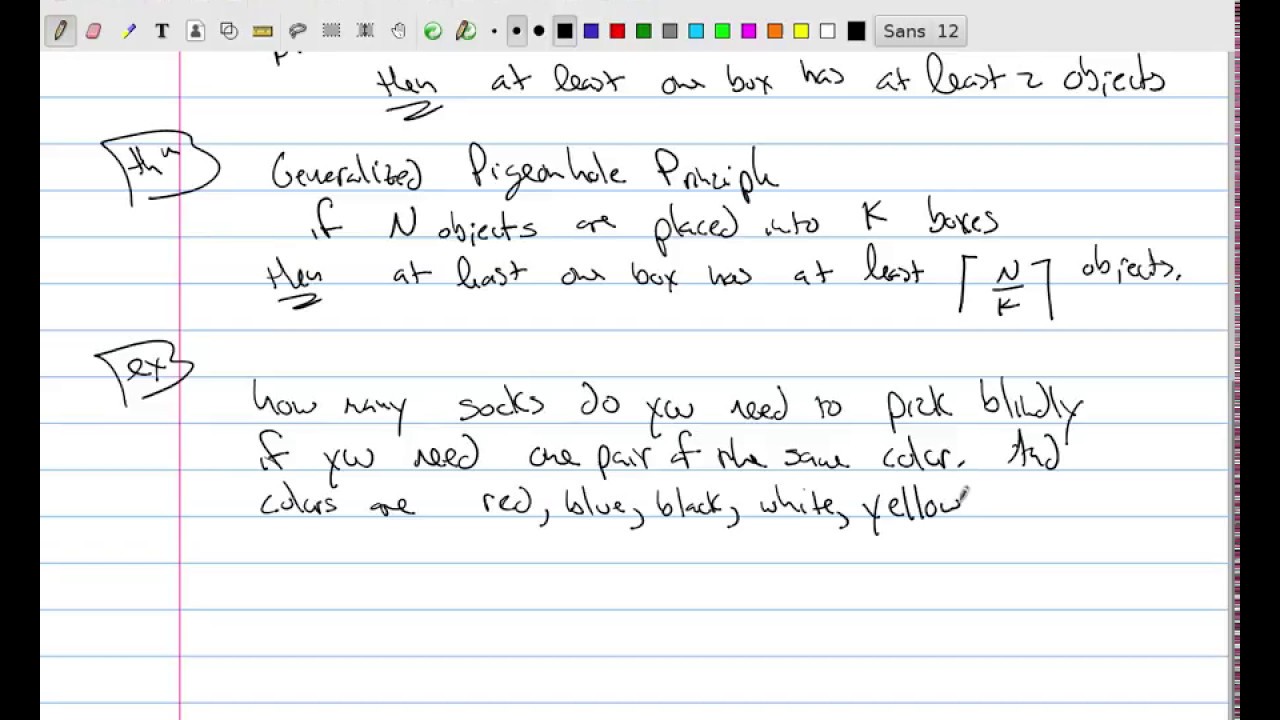 Sans 12
then at least one box has at least 2 objects
thm
Generalized Pigeonhole Principle
if N objects are placed into K boxes
then at least one box has at least ⌈N/K⌉ objects.
ex
how many socks do you need to pick blindly
if you need one pair of the same color. And
colors are red, blue, black, white, yellow